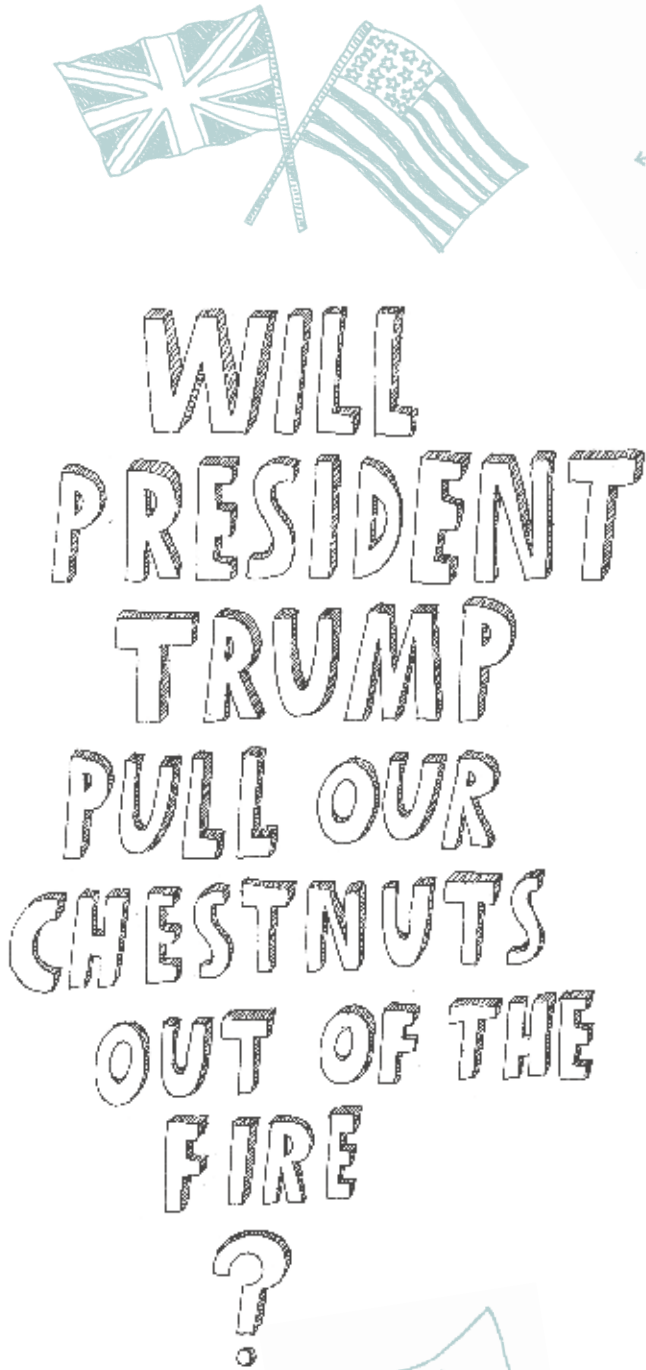 WILL
PRESIDENT
TRUMP
PULL OUR
CHESTNUTS
OUT OF THE
FIRE
?